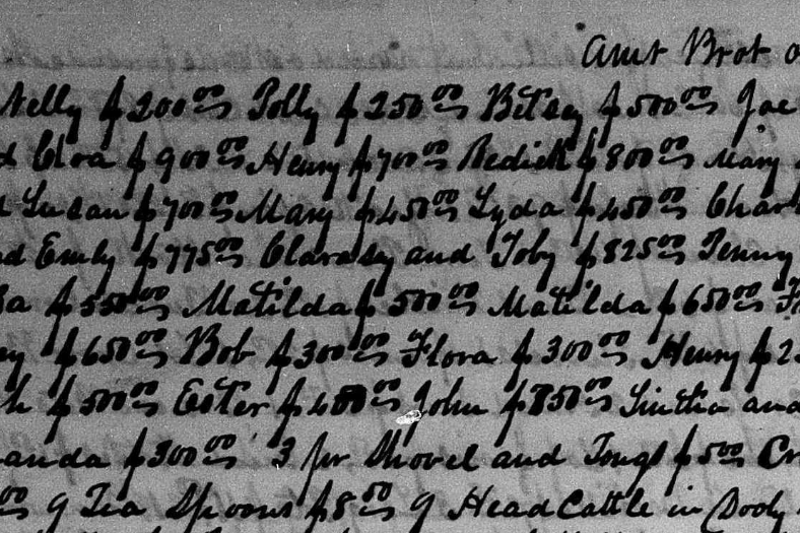 Amt Brot
Nelly $200.00 Polly $250.00 Betsey $500.00 Joe
Cloa $900.00 Henry $700.00 Redick $800.00 Mary
Susan $700.00 Mary $450.00 Lyda $450.00 Charl
nd Emily $775.00 Clarasy and Toby $825.00 Penny
$550.00 Matilda $500.00 Matilda $650.00
$650.00 Bob $300.00 Flora $300.00 Henry $2
h $500.00 Ester $400.00 John $850.00 Sintha and
anda $300.00 3 pr Shovel and Tongs $5.00 Cr
00 9 Tea Spoons $8.50 9 Head Cattle in Body